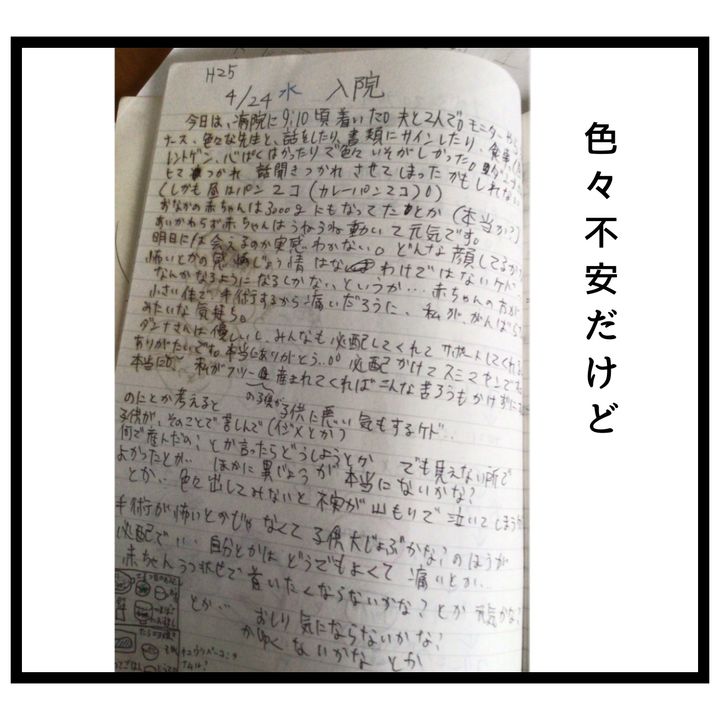 色々不安だけど
H25
4/24 水 入院
今日は、病院に9:10頃着いた。夫と2人で。モニターやら
ナース、色々な先生と、話をしたり、書類にサインしたり、食事
レントゲン、心ぱくはかったりで色々いそがしかった。
ヒマ つかれ 話聞きつかれ させてしまったかもしれな
(しかも昼はパン2コ(カレーパン2コ))
おなかの赤ちゃんは3000gにもなってたとか(本当か?)
あいかわらず赤ちゃんはうねうね動いて元気です。
明日には会えるのか実感わかない。どんな顔してるか
怖いとかの感じょう情はないわけではないケド
なんかなるようになるしかない、というか… 赤ちゃんの方が
小さい体で、手術するから痛いだろうに、私が、がんばら
みたいな気持ち。
ダンナさんは優しいし、みんなも心配してくれて サポートしてくれ
ありがたいです。本当にありがとう..。心配かけてスミマセンです
本当に 私がフツーに産まれてくれば こんな苦ろうもかけずに
の子供
のにとか考えると 子供に悪い気もするケド..
子供が、そのことで苦しんで(イジメとか)
何で産んだの?とか言ったらどうしようとか でも見えない所で
よかったとか.. ほかに異じょうが 本当にないかな?
とか.. 色々出してみないと不安が山もりで 泣いてしまう
手術が怖いとかじゃなくて子供大じょぶかな?のほうが
心配で… 自分とかはどうでもよくて 痛いとか..
赤ちゃんうつ状せで首いたくならないかな?とか 元気かな?
とか.. おしり気にならないかな?
かゆくないかな とか